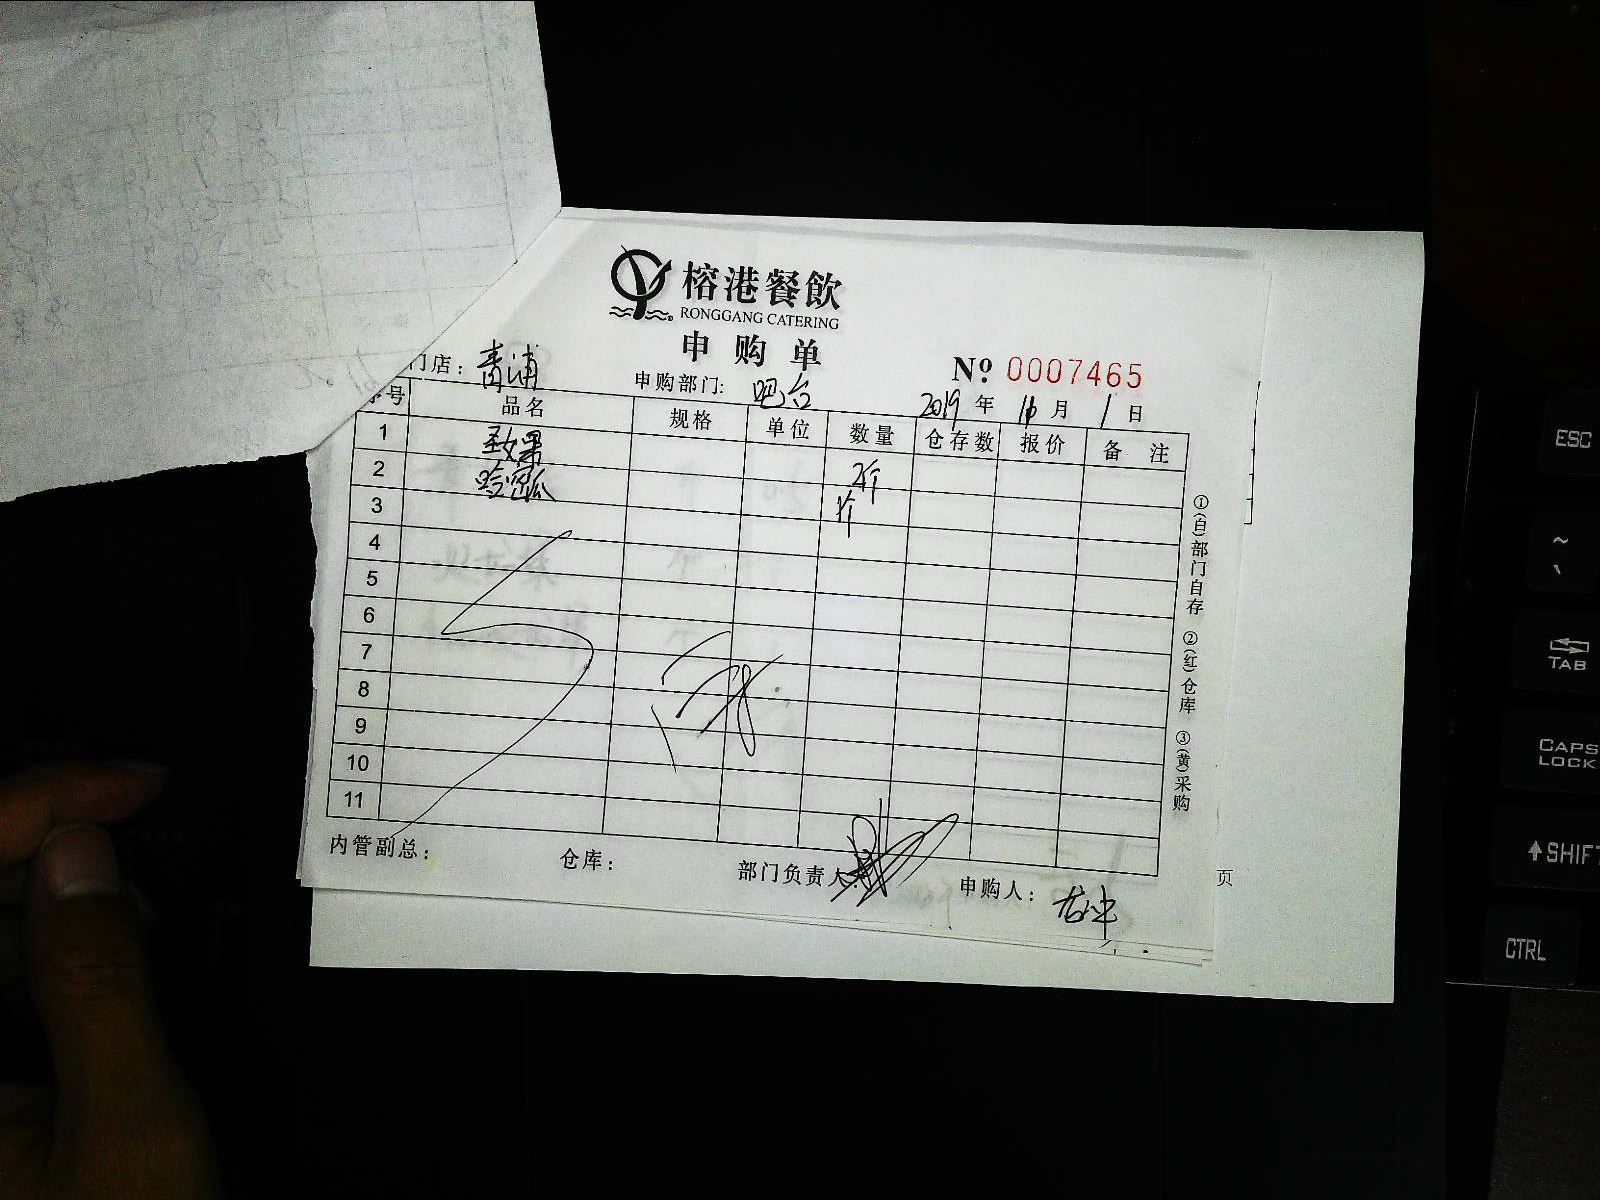 榕港餐飲
RONGGANG CATERING
申购单
№ 0007465
门店：青浦 申购部门：吧台 2019年 月1日
序号 品名 规格 单位 数量 仓存数 报价 备注
1 圣女果 2斤
2 哈密瓜 1斤
3
4
5
6
7
8
9
10
11
①(白)部门自存 ②(红)仓库 ③(黄)采购
内管副总： 仓库： 部门负责人： 申购人：
页
ESC
~
TAB
CAPS LOCK
SHIFT
CTRL